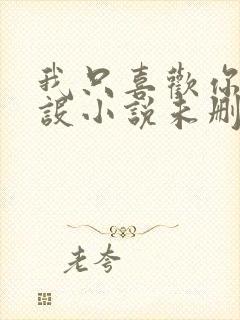 我只喜歡你
設小說未刪
老夸